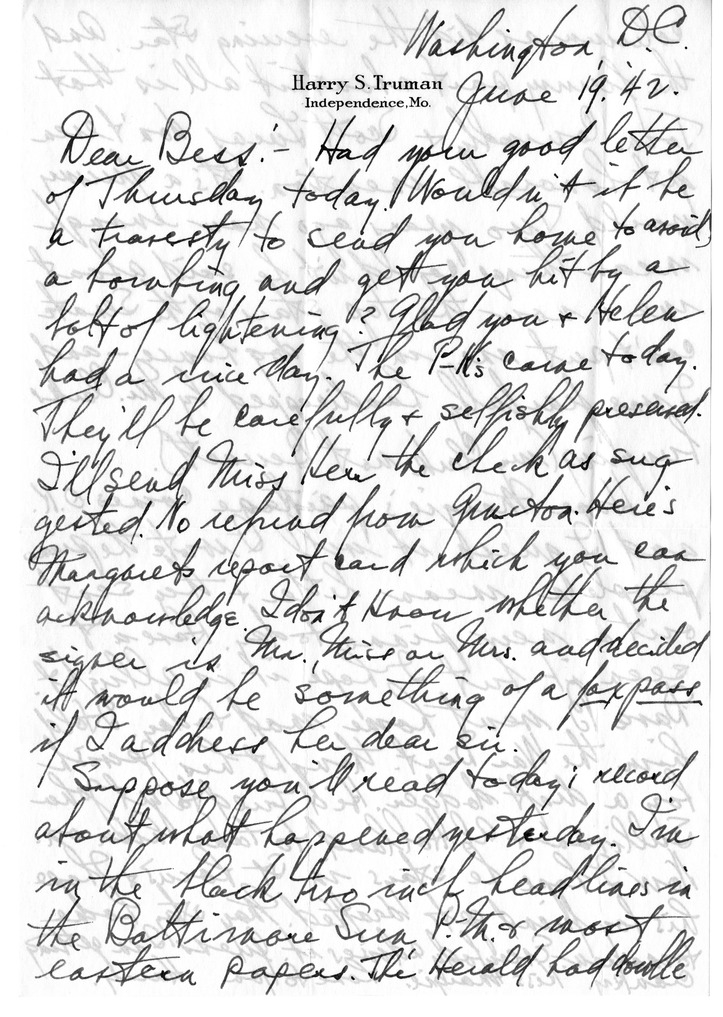 Washington, D.C.
Harry S. Truman
Independence, Mo.
June 19, 42.
Dear Bess:- Had your good letter
of Thursday today. Wouldn't it be
a travesty to send you home to avoid
a bombing and get you hit by a
bolt of lightening? Glad you & Helen
had a nice day. The P-K's came today.
They'll be carefully & selfishly preserved.
I'll send Miss the check as sug
gested. No refund from Gunston. Here's
Margaret's report card which you can
acknowledge. I don't know whether the
signer is Mr., Miss or Mrs. and decided
it would be something of a fox pass
if I address her dear sir.
Suppose you'll read today's record
about what happened yesterday. I'm
in the black two inch headlines in
the Baltimore Sun P.M. & most
eastern papers. The Herald had double